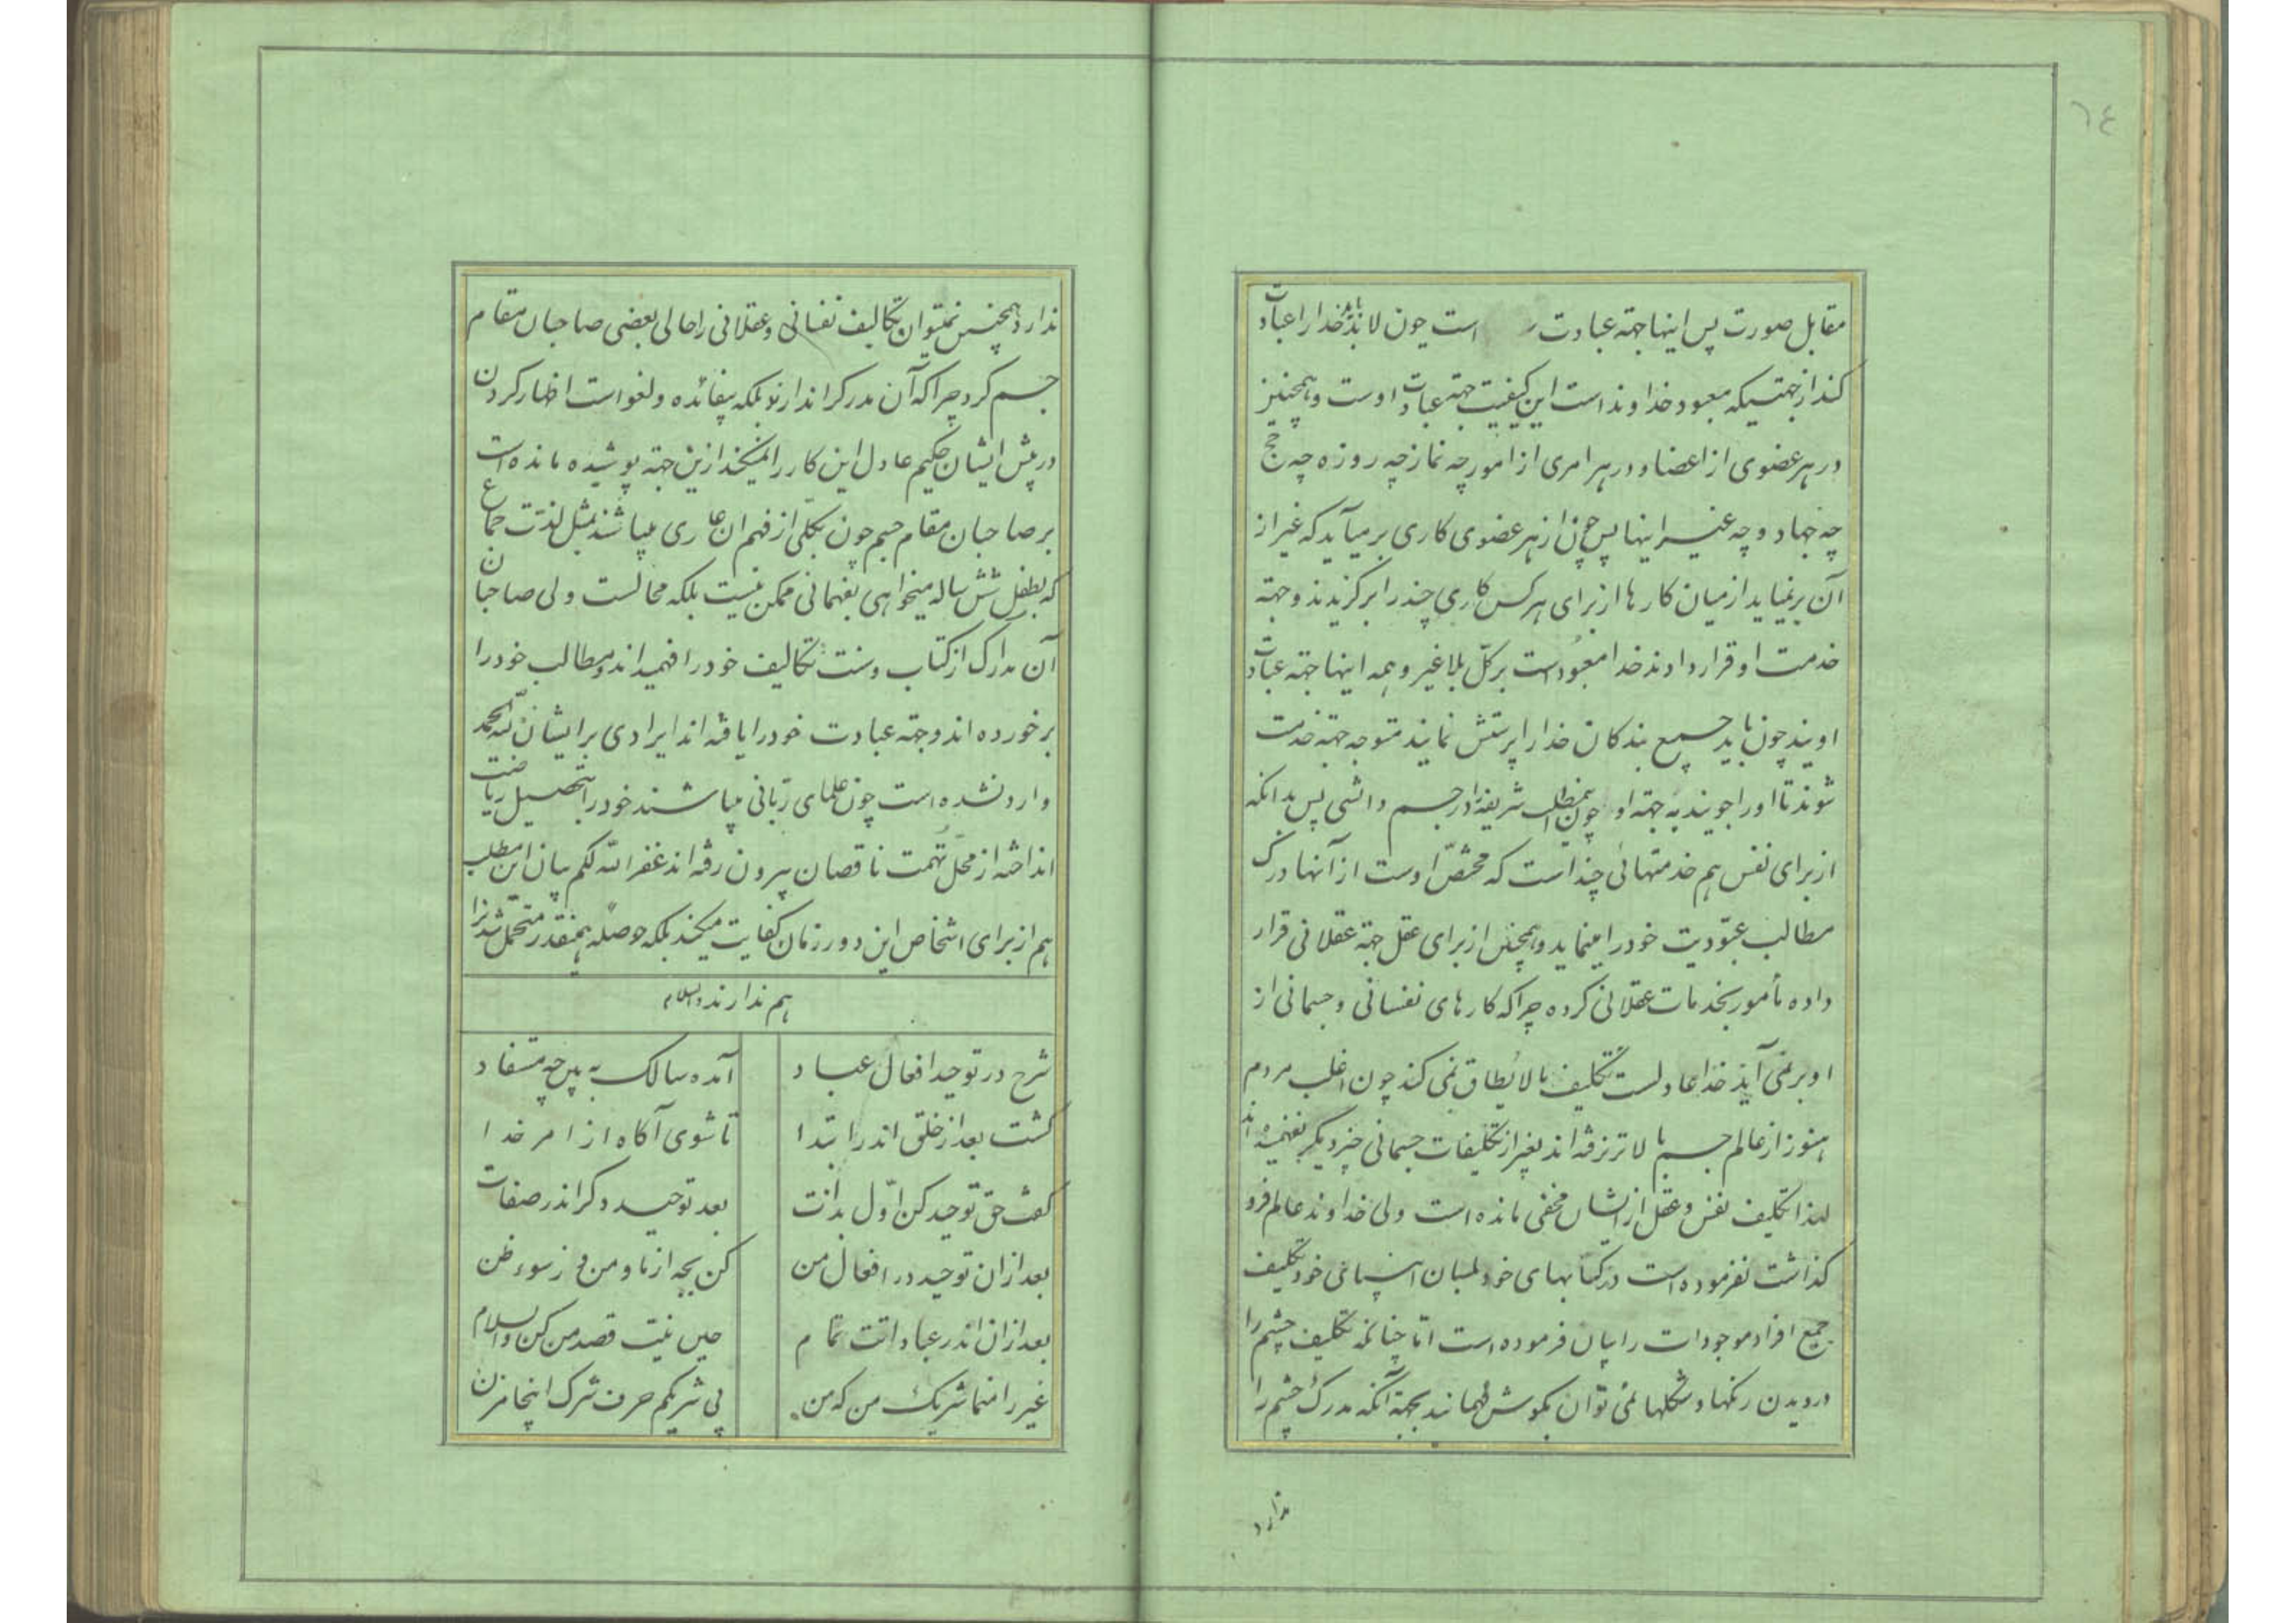 ٦٤
مقابل صورت پس اینها جهته عبادت است چون لابد باید خدا را عبادت
کند از جهتیکه معبود خداوند است این کیفیت جهته عبادت اوست و همچنین
در هر عضوی از اعضا و در هر امری از امور چه نماز چه روزه چه حج
چه جهاد و چه غیر اینها پس چون از هر عضوی کاری بر میآید که غیر از
آن بر نمیاید از میان کارها از برای هر کس کاری چند را برگزیدند و جهته
خدمت او قرار دادند خدا معبود است بر کلّ بلا غیر و همه اینها جهته عبادت
اویند چون باید جمیع بندکان خدا را پرستش نمایند متوجه جهته خدمت
شوند تا او را جویند به جهته او چون این مطلب شریفه را در جسم دانستی پس بدانکه
از برای نفس هم خدمتهائی چند است که مختصّ اوست از آنها درک
مطالب عبودیت خود را مینماید و همچنین از برای عقل جهته عقلانی قرار
داده مأمور بخدمات عقلانی کرده چرا که کارهای نفسانی و جسمانی از
او بر نمی آید خدا عادلست تکلیف مالایطاق نمی کند چون اغلب مردم
هنوز از عالم جسم بالاتر نرفته اند بغیر از تکلیفات جسمانی چیز دیگر نفهمیده اند
لهذا تکلیف نفس و عقل از ایشان مخفی مانده است ولی خداوند عالم فرو
کذاشت نفرموده است در کتابهای خود بلسان انبیای خود تکلیف
جمیع افراد موجودات را بیان فرموده است امّا چنانکه تکلیف چشم را
در دیدن رنکها و شکلها نمی توان بکوش فهمانید بجهته آنکه مدرک چشم را
ندارد
ندارد همچنین نمیتوان تکالیف نفسانی و عقلانی را حالی بعضی صاحبان مقام
جسم کرد چرا که آن مدرک را ندارند بلکه بیفائده و لغو است اظهار کردن
در پیش ایشان حکیم عادل این کار را نمیکند ازین جهته پوشیده مانده است
بر صاحبان مقام جسم چون بکلّی از فهم آن عاری میباشند مثل لذّت جماع
که بطفل شش ساله میخواهی بفهمانی ممکن نیست بلکه محالست ولی صاحبان
آن مدارک از کتاب و سنت تکالیف خود را فهمیده اند و مطالب خود را
بر خورده اند و جهته عبادت خود را یافته اند ایرادی بر ایشان للّه الحمد
وارد نشده است چون علمای ربّانی میباشند خود را بتحصیل ریاضت
انداخته از محلّ تهمت ناقصان بیرون رفته اند غفر اللّه لکم بیان این مطلب
هم از برای اشخاص این دور زمان کفایت میکند بلکه حوصله همینقدر متحمل شدن را
هم ندارند والسلام
شرح در توحید افعال عباد
آمده سالک به بین چه مستفاد
کشت بعد از خلق اندر ابتدا
تا شوی آگاه از امر خدا
کفت حق توحید کن اوّل بذات
بعد توحید دکر اندر صفات
بعد ازان توحید در افعال من
کن بجه از ما و من وز سوء ظن
بعد ازان اندر عباداتت تمام
حین نیّت قصد من کن والسلام
غیر را منما شریک من که من
بی شریکم حرف شرک اینجا مزن